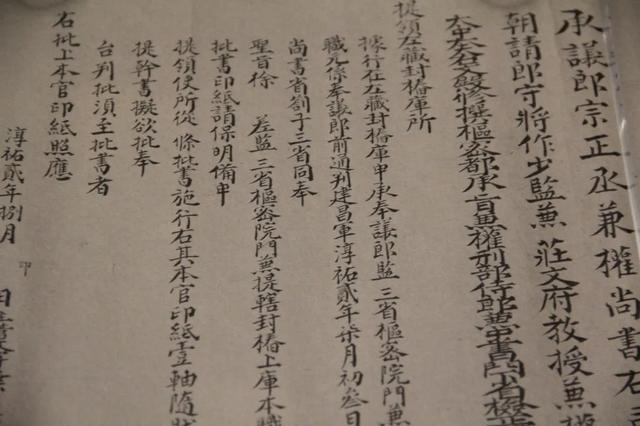 承議郎宗正丞兼權尚書右
朝請郎守將作少監兼 莊文府教授兼權
修撰樞密都承旨兼權刑部侍郎兼中書門下省檢正
提領左藏封樁庫所
據行在左藏封樁庫申承奉議郎監 三省樞密院門兼
職元係奉議郎前通判建昌軍淳祐貳年柒月初叁日
尚書省劄子三省同奉
聖旨徐 差監 三省樞密院門兼提轄封樁上庫本職
批書印紙請保明備申
提領使所從 條批書施行右其本官印紙壹軸隨狀
提幹書擬欲批奉
台判批須至批書者
右批上本官印紙照應
淳祐貳年捌月 印 日